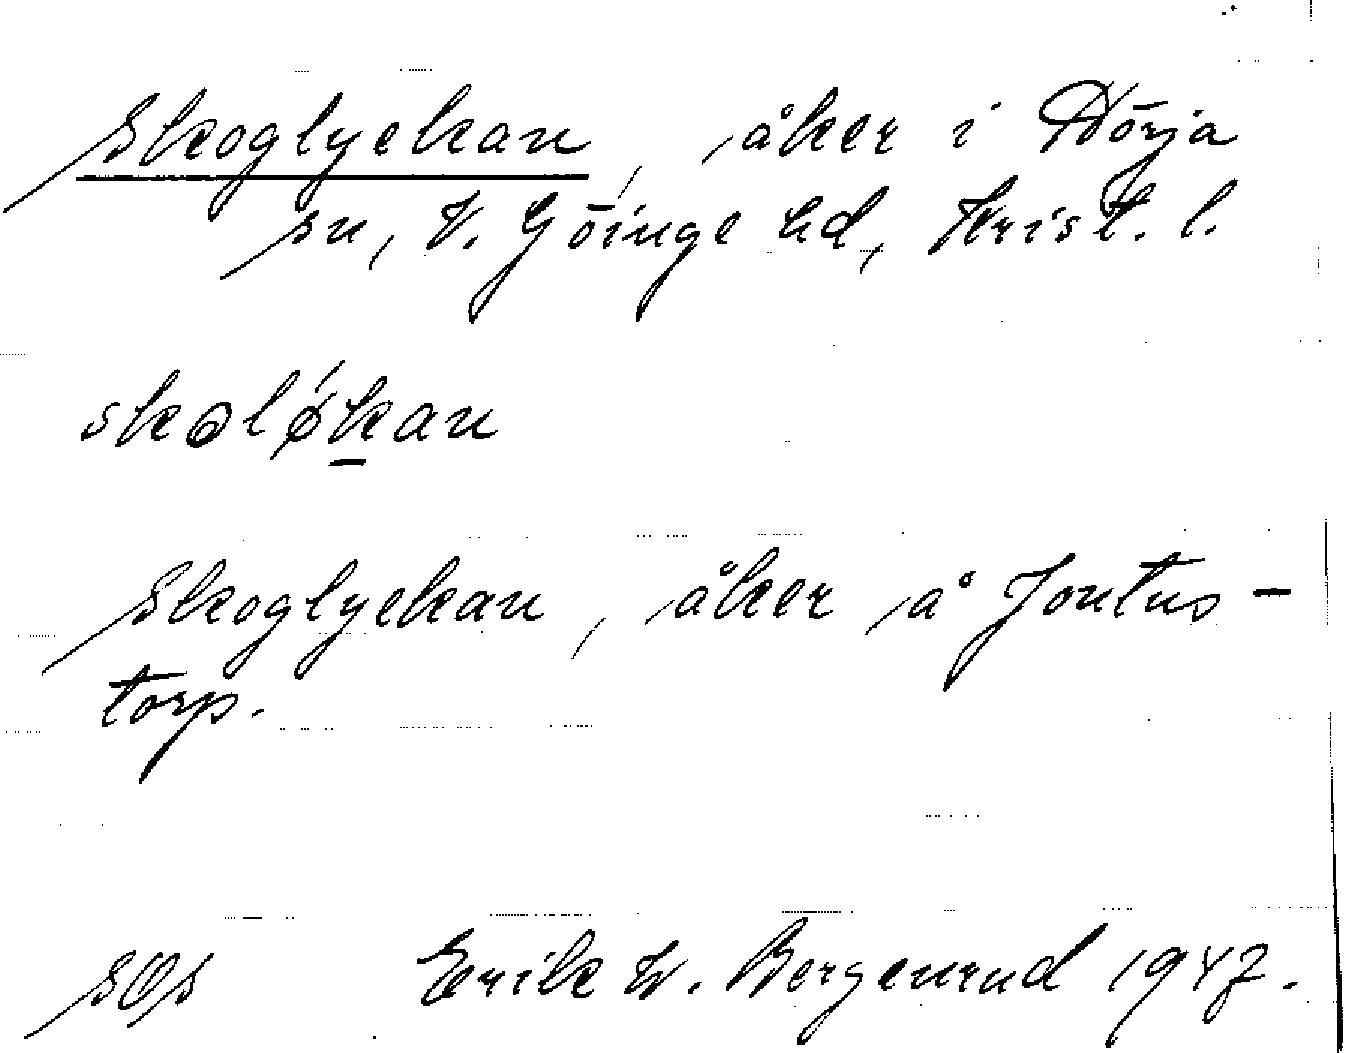 Skoglyckan, åker i Hörja
sn, V. Göinge hd, Krist. l.
skoløkan
Skoglyckan, åker å Jontus-
torp.
sOs Erik W. Bergenrud 1947.